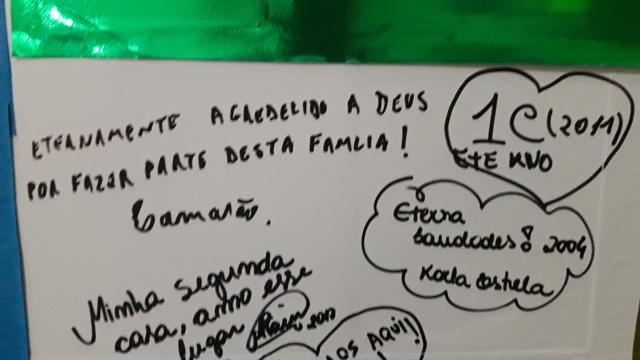 ETERNAMENTE AGRADELIDO A DEUS
POR FAZER PARTE DESTA FAMLIA!
Camarão.
1C (2011)
ETE KVO
Eterna
saudades! 2004
Karla Costela
Minha segunda
casa, amo esse
lugar
OS AQUI!